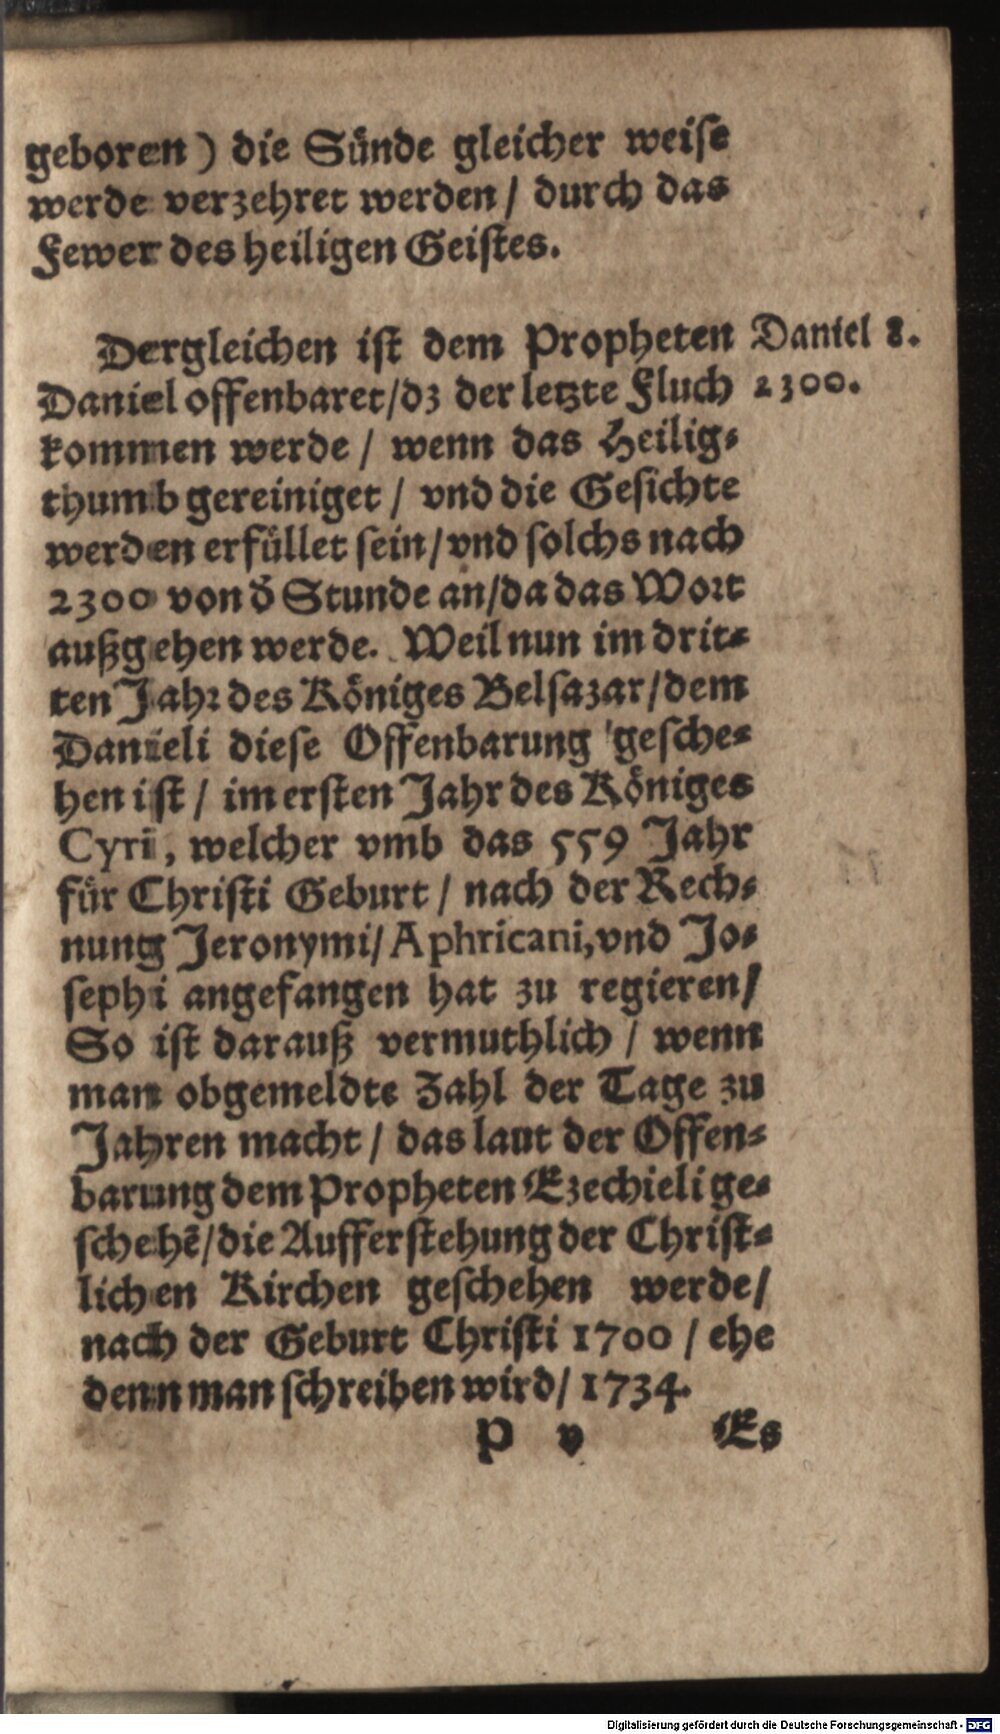 geboren) die Sünde gleicher weise
werde verzehret werden / durch das
Fewer des heiligen Geistes.
Dergleichen ist dem Propheten
Daniel 8.
Daniel offenbaret/dz der letzte Fluch
2300.
kommen werde / wenn das Heilig-
thumb gereiniget / vnd die Gesichte
werden erfüllet sein/vnd solchs nach
2300 von d̄ Stunde an/da das Wort
außgehen werde. Weil nun im drit-
ten Jahr des Königes Belsazar/dem
Danieli diese Offenbarung gesche-
hen ist / im ersten Jahr des Königes
Cyri, welcher vmb das 559 Jahr
für Christi Geburt / nach der Rech-
nung Jeronymi/Aphricani,vnd Jo-
sephi angefangen hat zu regieren/
So ist darauß vermuthlich / wenn
man obgemeldte Zahl der Tage zu
Jahren macht / das laut der Offen-
barung dem Propheten Ezechieli ge-
schehē/die Aufferstehung der Christ-
lichen Kirchen geschehen werde/
nach der Geburt Christi 1700 / ehe
denn man schreiben wird/1734.
P v Es
Digitalisierung gefördert durch die Deutsche Forschungsgemeinschaft - DFG